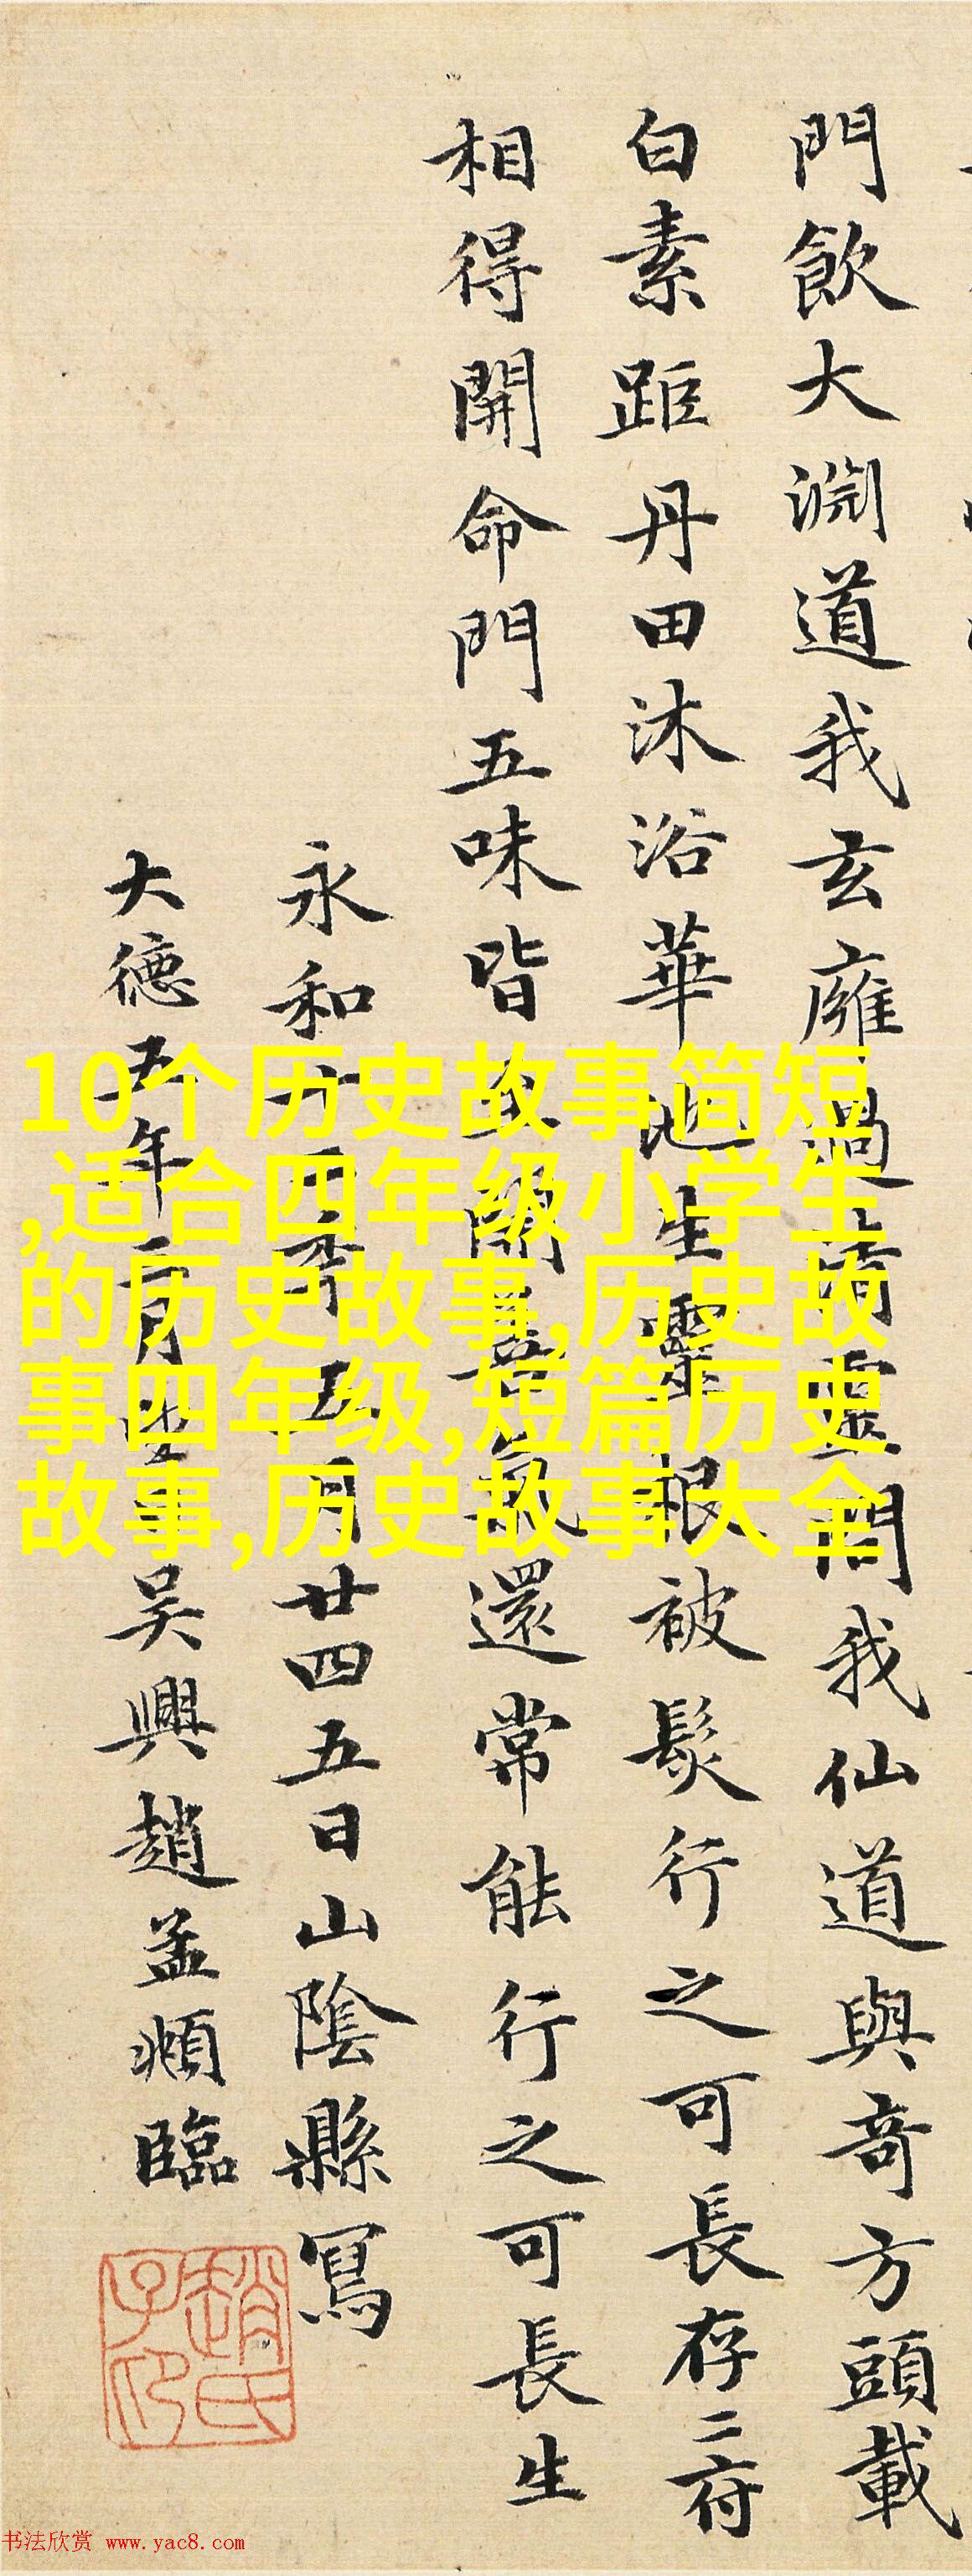 門飲大淵道我玄廱過清靈問我仙道與奇方頭載
白素距丹田沐浴華池生靈根被髮行之可長存二府
相得開命門五味皆至開善氣還常能行之可長生
永和十二年五月廿四五日山陰縣寫
大德五年二月吴興趙孟頫臨
趙氏子昂
10个历史故事简短
,适合四年级小学生
的历史故事,历史故
事四年级,短篇历史
故事,历史故事大全
书法欣赏 www.yac8.com